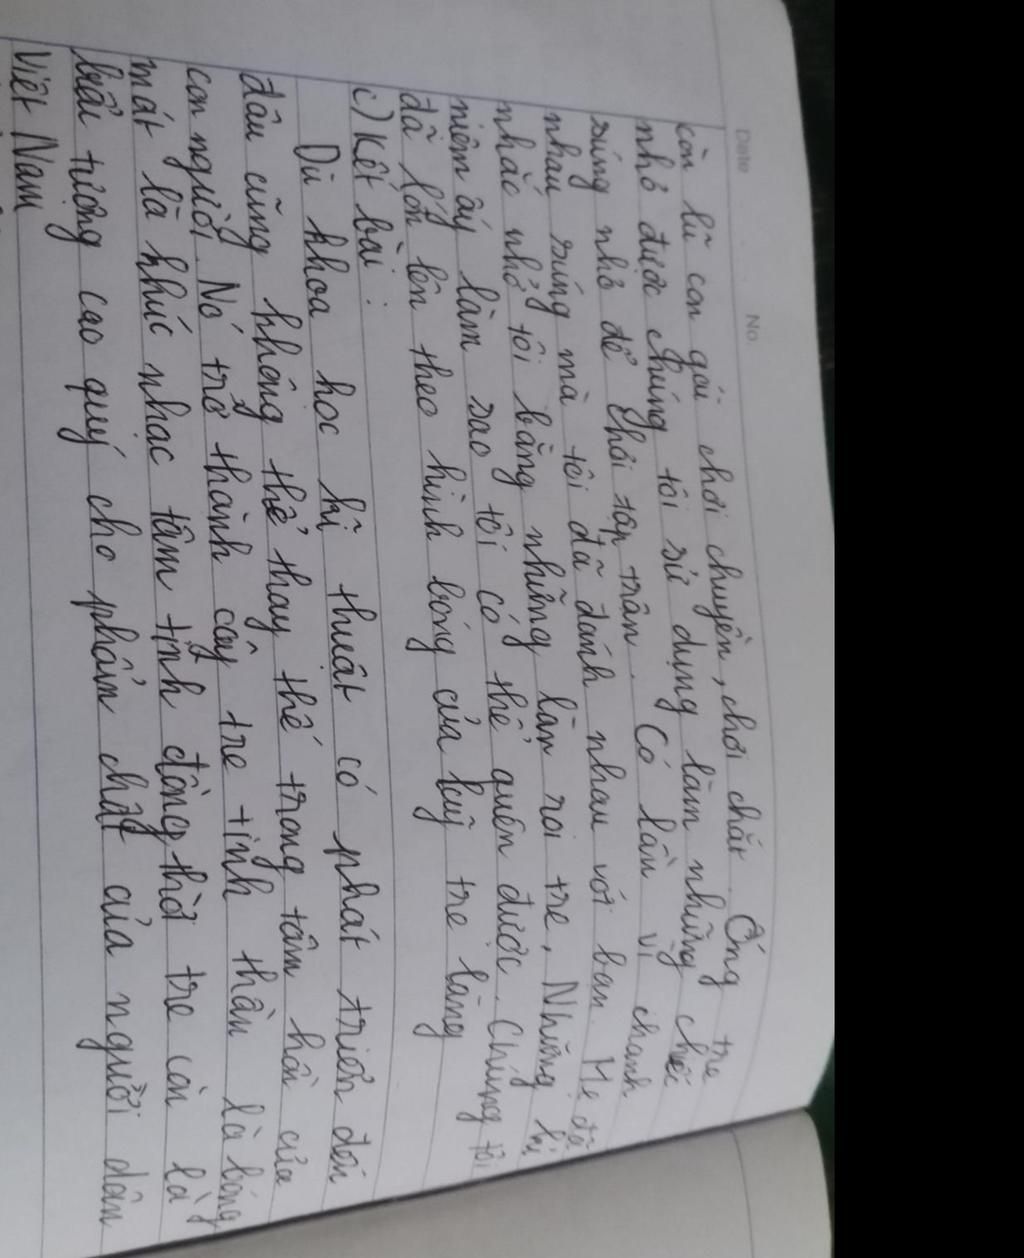 Date No.
còn lũ con gái chơi chuyền, chơi chắt. Ống tre
nhỏ được chúng tôi sử dụng làm những chiếc
súng nhỏ để chơi tập trận. Có lần vì chanh
nhau súng mà tôi đã đánh nhau với bạn. Mẹ đã
nhắc nhở tôi bằng những lằn roi tre, Những kỉ
niệm ấy làm sao tôi có thể quên được. Chúng tôi
đã lớn lên theo hình bóng của luỹ tre làng
c) Kết bài:
Dù khoa học kĩ thuật có phát triển đến
đâu cũng không thể thay thế trong tâm hồn của
con người. Nó trở thành cây tre tinh thần là bóng
mát là khúc nhạc tâm tình đồng thời tre còn là
biểu tượng cao quý cho phẩm chất của người dân
Việt Nam